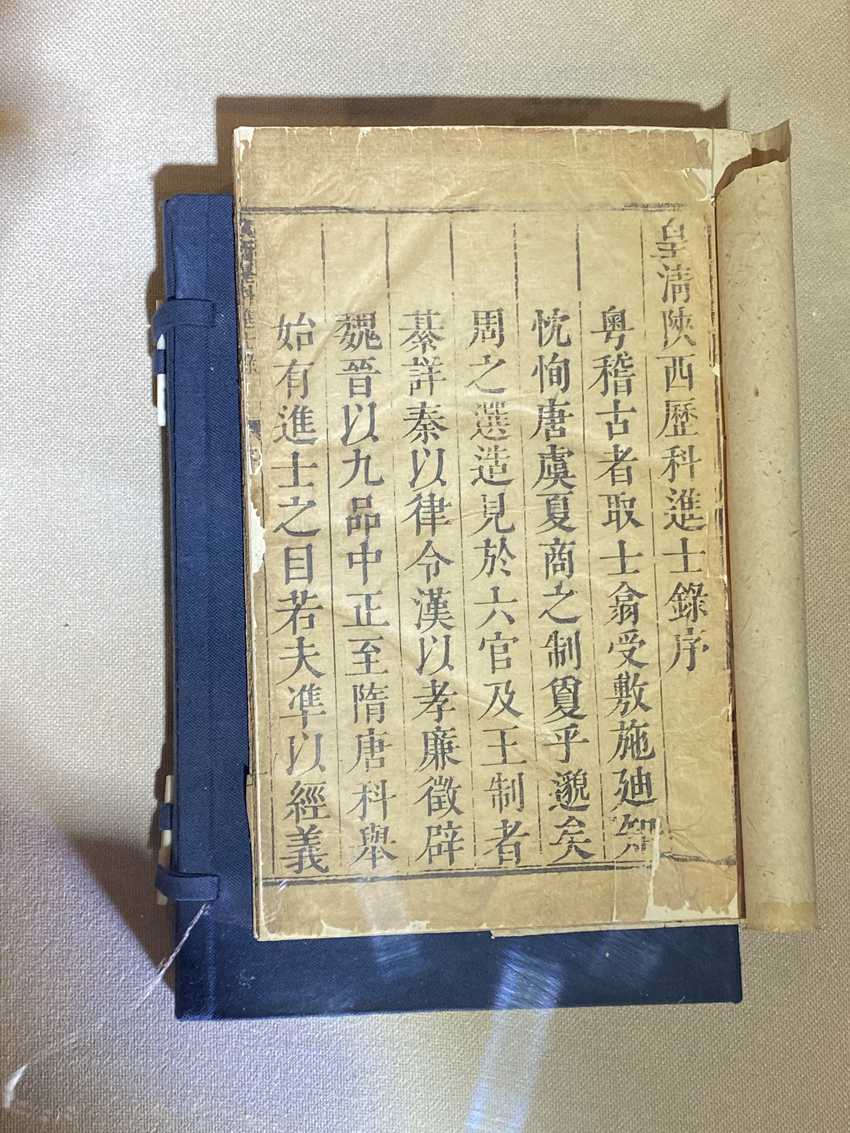 皇清陝西歷科進士錄序
粵稽古者取士翕受敷施廸知
忱恂唐虞夏商之制夐乎邈矣
周之選造見於六官及王制者
綦詳秦以律令漢以孝廉徵辟
魏晉以九品中正至隋唐科舉
始有進士之目若夫準以經義